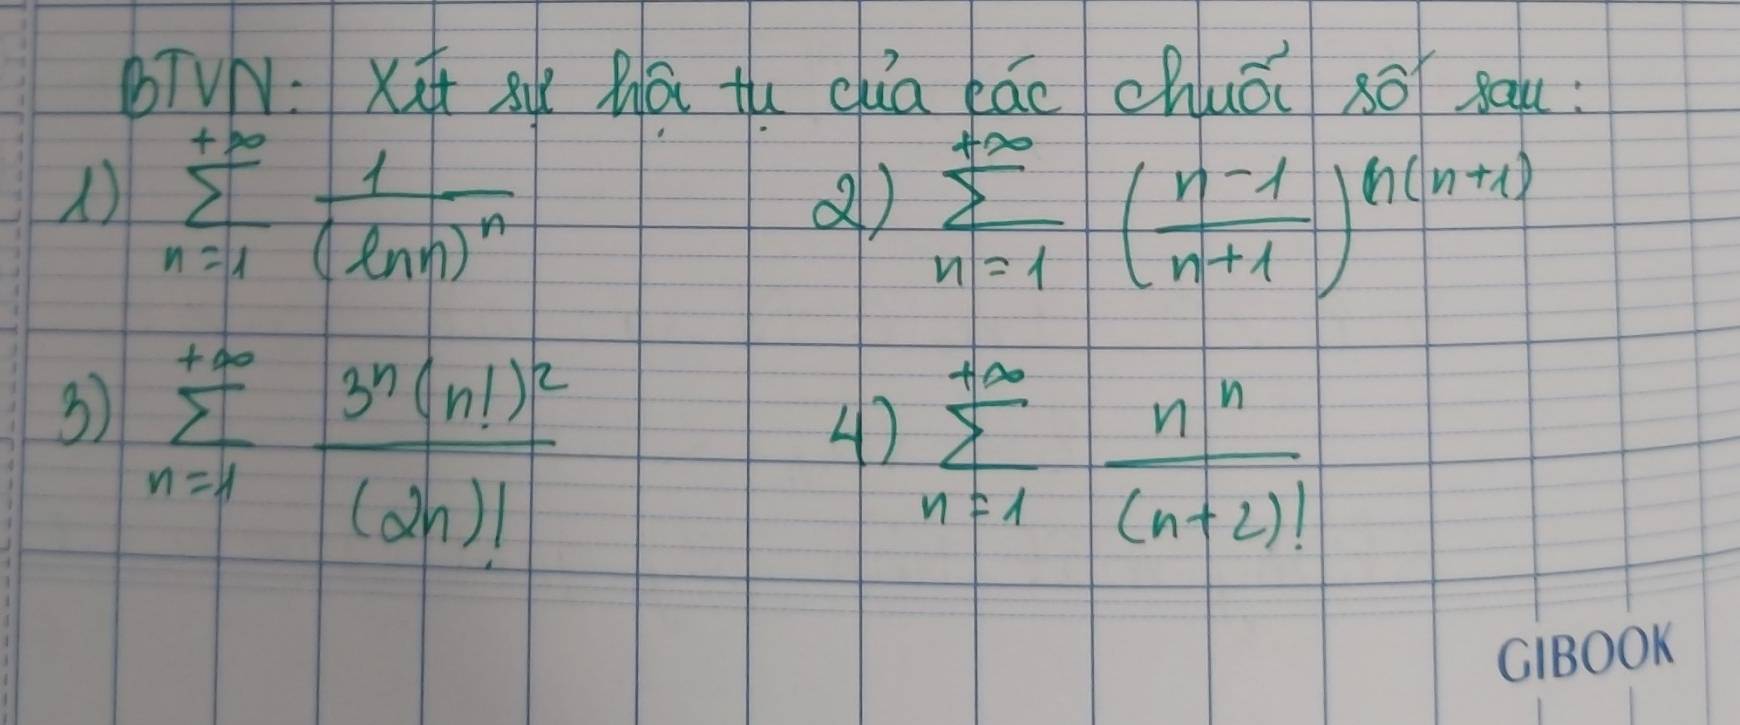 BTVN: Xét sự hội tụ của các chuỗi số sau:
1) \sum_{n=1}^{+\infty} \frac{1}{(\ln n)^n} 2) \sum_{n=1}^{+\infty} \left(\frac{n-1}{n+1}\right)^{n(n+1)}
3) \sum_{n=1}^{+\infty} \frac{3^n(n!)^2}{(2n)!} 4) \sum_{n=1}^{+\infty} \frac{n^n}{(n+2)!}
GIBOOK